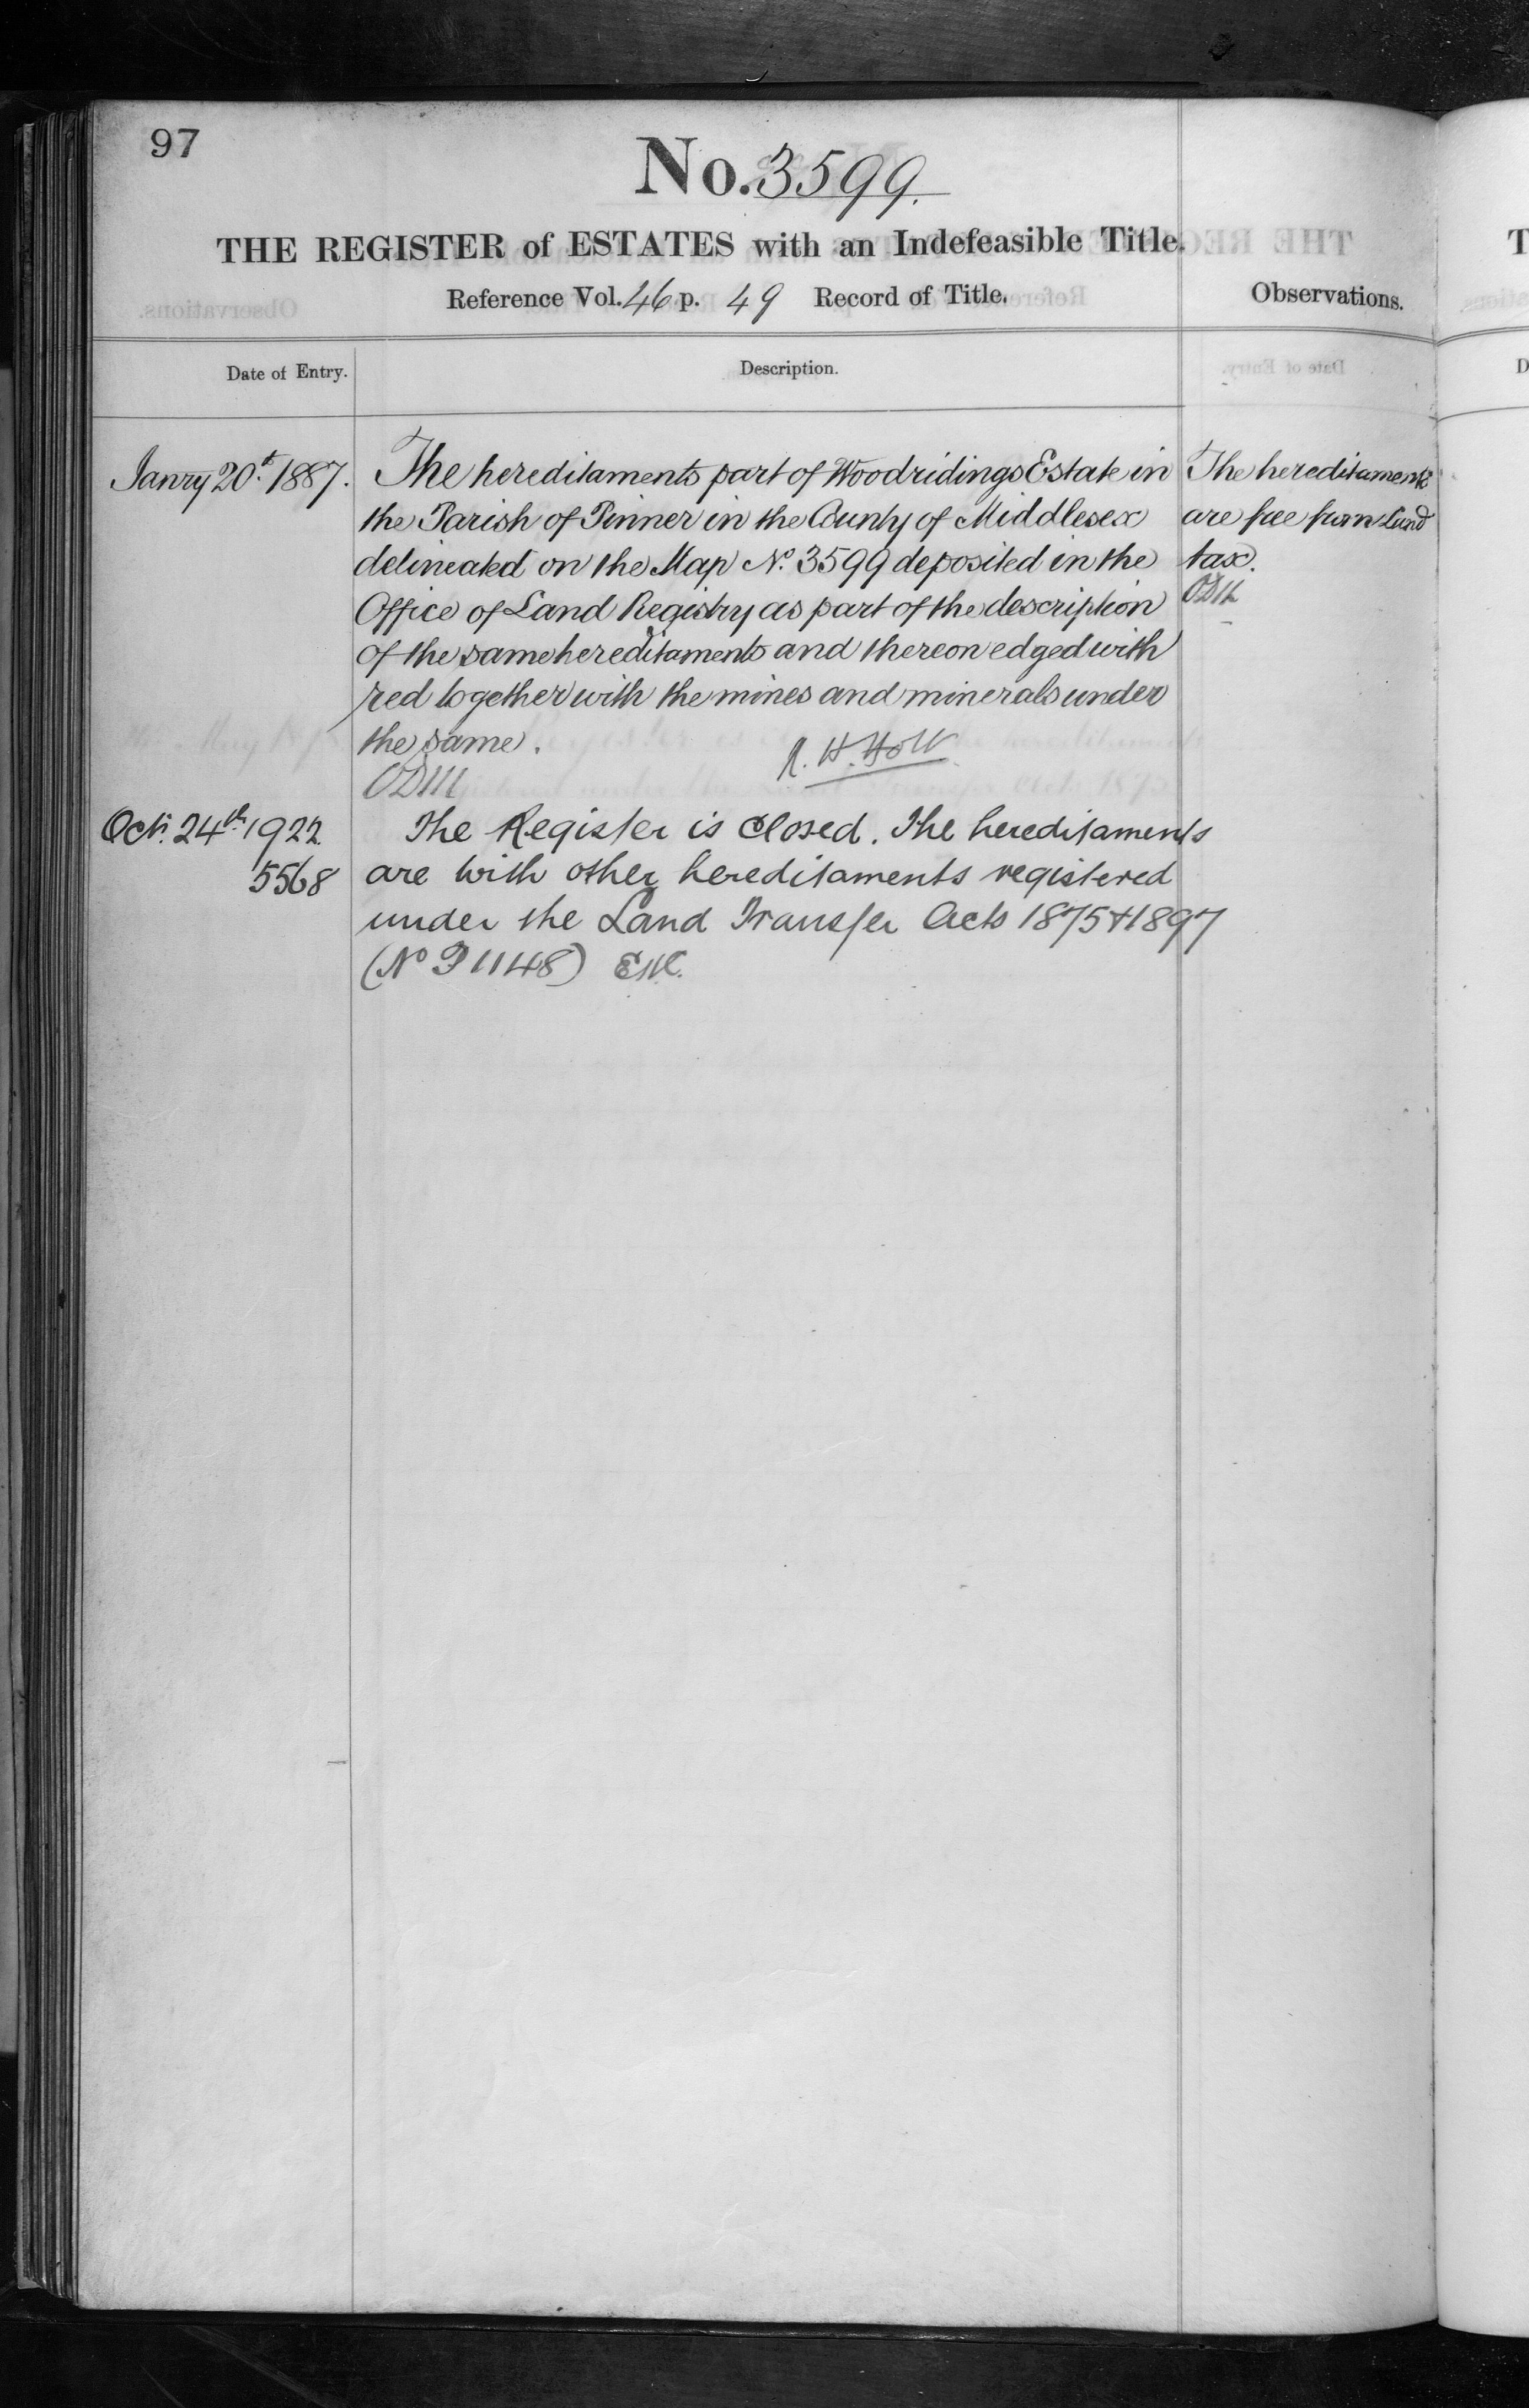 97
No. 3599.
THE REGISTER of ESTATES with an Indefeasible Title.
Reference Vol. 46 p. 49 Record of Title.
Observations.
Date of Entry.
Description.
Janry 20t. 1887.
The hereditaments part of Woodridings Estate in
the Parish of Pinner in the County of Middlesex
delineated on the Map No. 3599 deposited in the
Office of Land Registry as part of the description
of the same hereditaments and thereon edged with
red together with the mines and minerals under
the same.
R. H. Holt
The hereditaments
are free from Land
tax.
Oct. 24th 1922
5568
The Register is closed. The hereditaments
are with other hereditaments registered
under the Land Transfer Acts 1875 & 1897
(No P 1148)